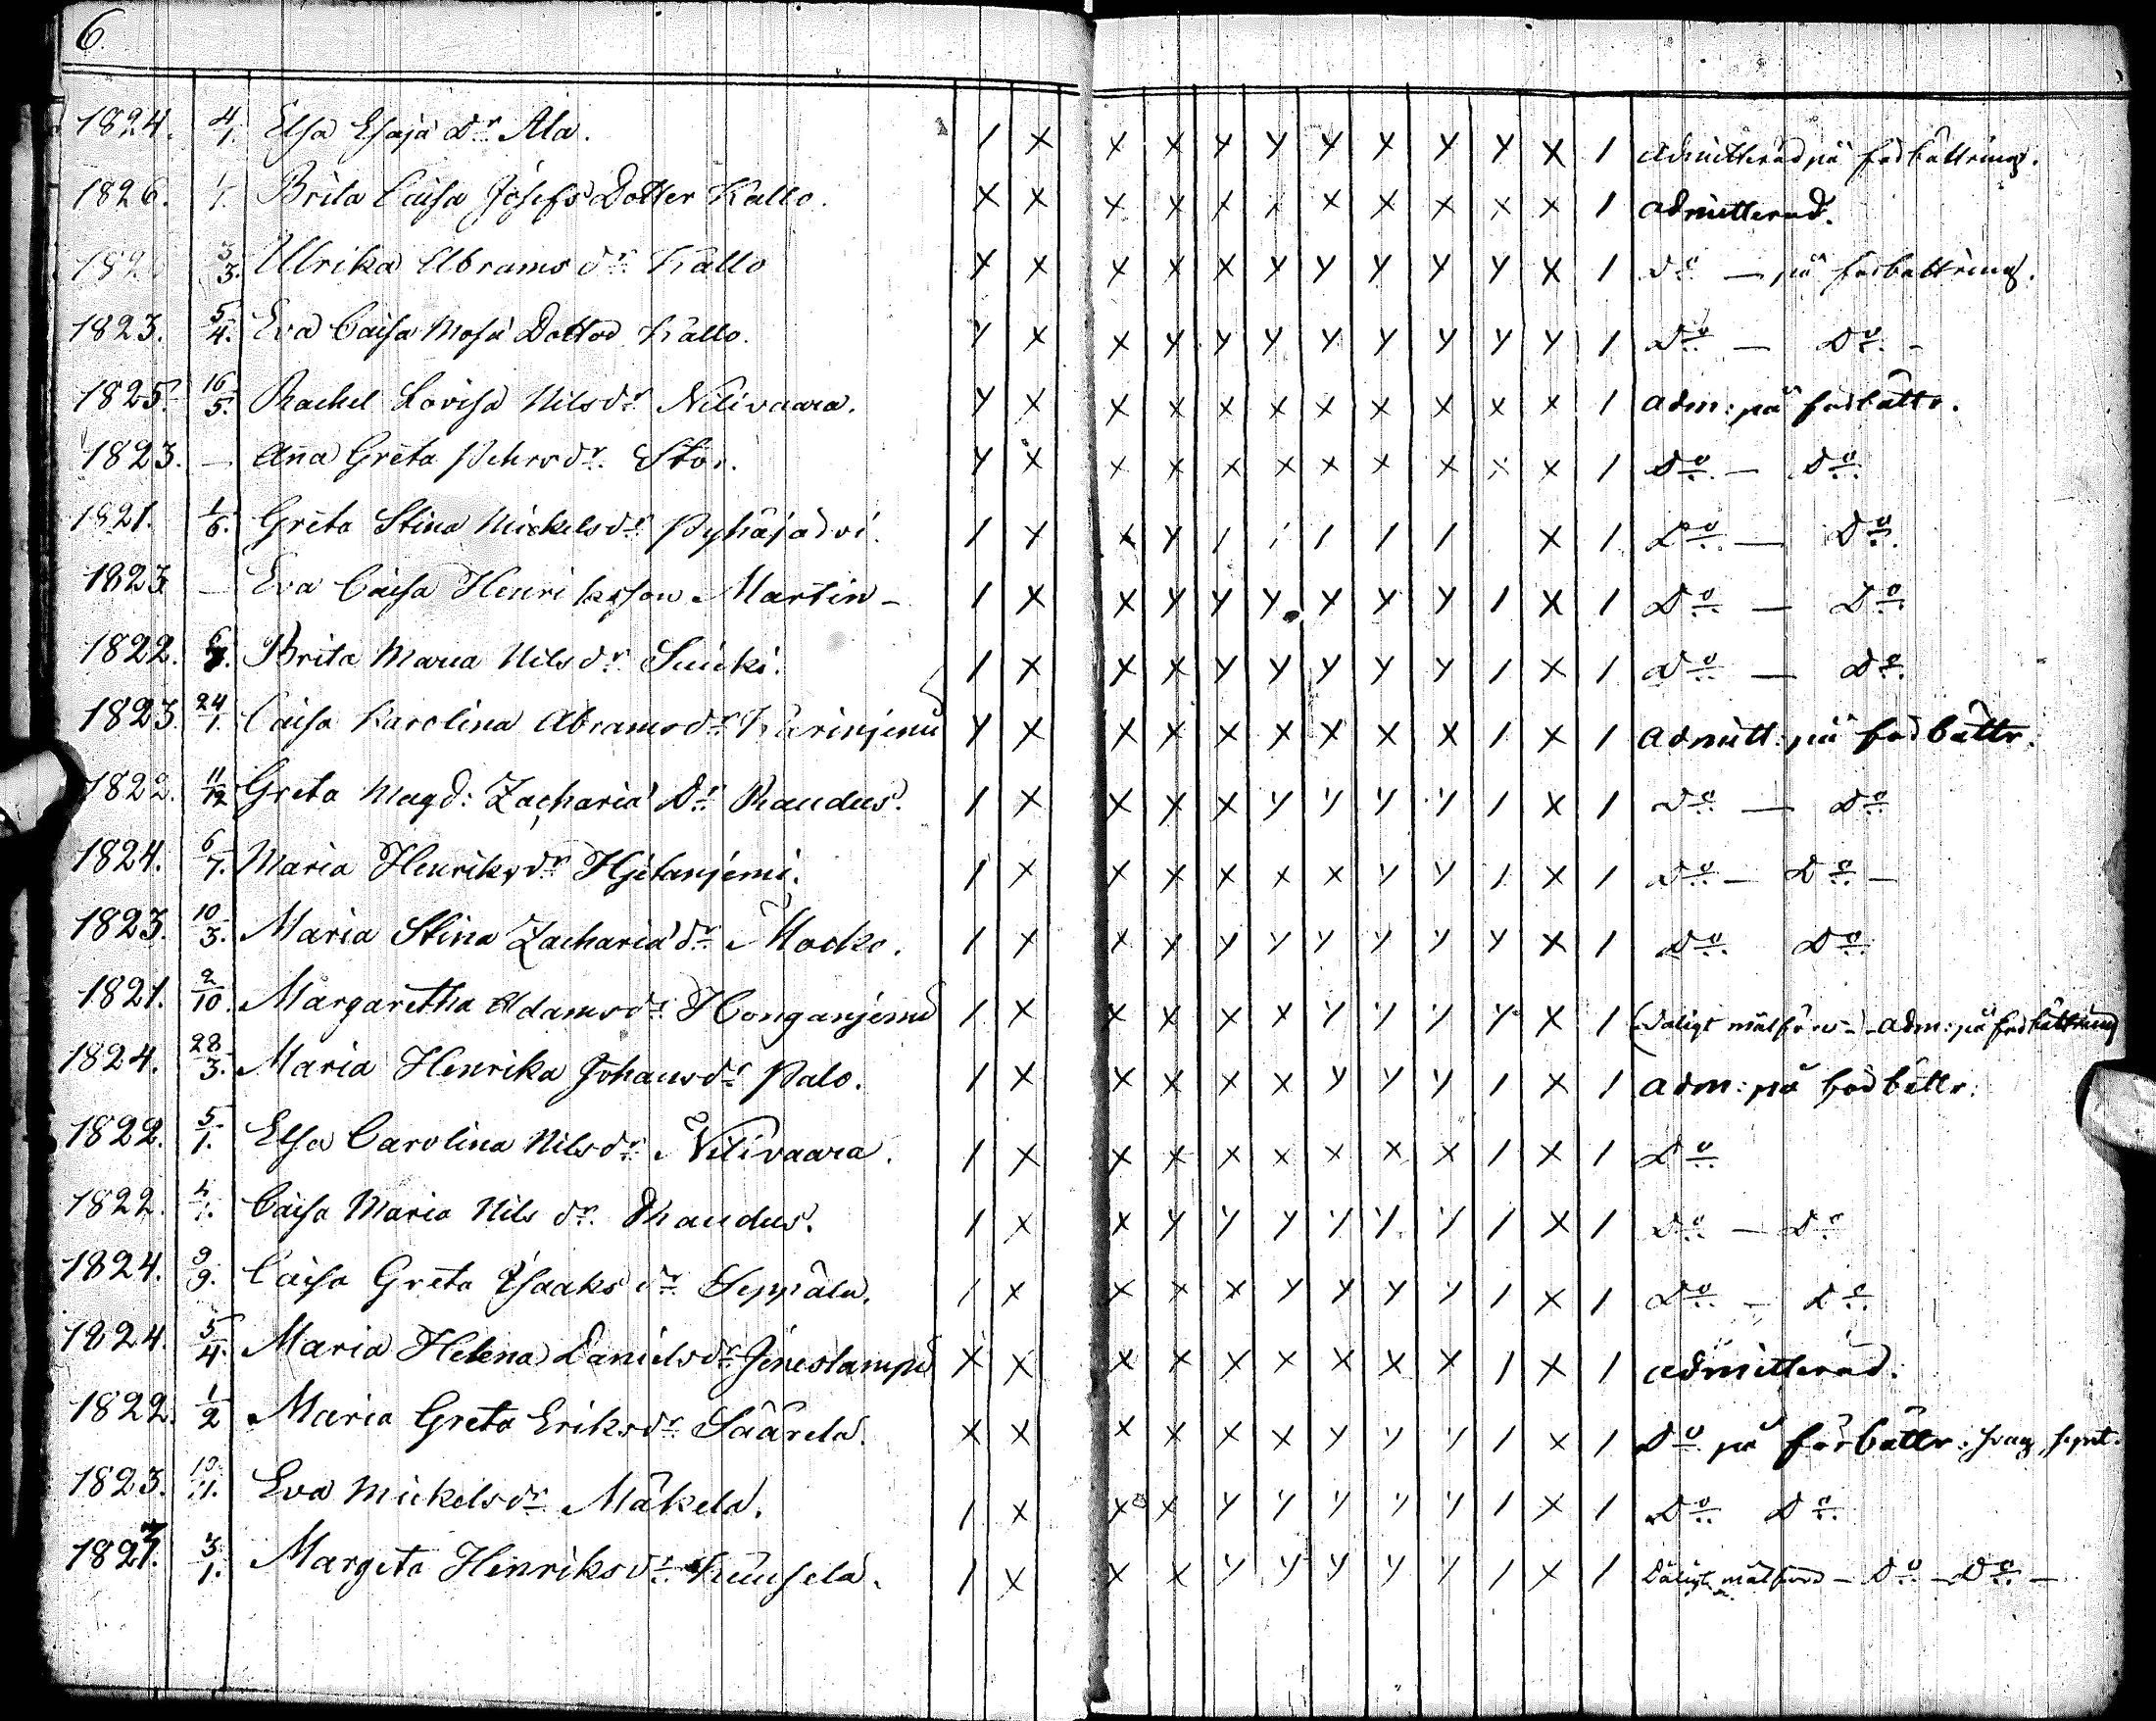 6.
1824. 4/1. Elsa Esaja Dr. Ala. / x x x y y y y y y x / admitterad på förbättring.
1826. 1/1. Brita Caisa Josefs Dotter Kallo. x x x x x x x x x x x / admitterad.
182 3/3. Ulrika Abrams dr. Kallo y x x x x y y y y y x / do — på förbättring.
1823. 5/4. Eva Caisa Mosa Dotter Kallo. y x x y y y y y y y y / Do — Do. -
1825. 16/5. Rachel Lovisa Nilsdr. Nilivaara. y x x x x x x x x x x / adm: på förbättr.
1823. — Anna Greta Pehrsdr. Stor. y x x x x x x x x x x / Do. — Do.
1821. 1/6. Greta Stina Mickelsdr. Pyhäjärvi. / x x y / / / / / x / Do. — Do.
1823 — Eva Caisa Henriksson Martin - / x x y y y y y y / x / Do — Do
1822. Brita Maria Nilsdr. Suicki. / x x x y y y y y / x / Do — Do.
1823. 24/1. Caisa Karolina Abramsdr. y x x x x x x x x / x / admitt: på förbättr.
1822. 11/12 Greta Magd: Zacharia Dr. Raudus. / x x x x y y y y / x / Do — Do
1824. 6/7. Maria Henriksdr. Hjetanjemi. / x x x x x x y y / x / Do — Do —
1823. 10/3. Maria Stina Zacharia dr. Mocko. / x x x y y y y y y x / Do. Do.
1821. 2/10. Margaretha Adamsdr. Honganjemi / x x x x x y y y y x / (Dåligt målföre -) adm: på förbättring
1824. 28/3. Maria Henrika Johansdr. Palo. / x x x x x y y y / x / adm: på förbättr:
1822. 5/1. Elsa Carolina Nilsdr. Nilivaara. / x x x x x x x x / x / Do
1822. 4/1. Caisa Maria Nils dr. Raudus. / x x y y y y y y / x / Do — Do
1824. 9/9. Caisa Greta Isaks dr. Seppälä. / x x x x y y y y / x / Do — Do
1824. 5/4. Maria Helena Danielsdr. x x x x x x x x x / x / admitterad.
1822. 1/2 Maria Greta Eriksdr. Säärelä. x x x x x x y y y / x / Do på förbättr:
1823. 10/11. Eva Mickelsdr. Mäkelä. / x x x y y y y y / x / Do Do
1827. 3/1. Margeta Henriksdr. Kuusela. / x x x y y y y y / x / Dåligt målföre — Do — Do —